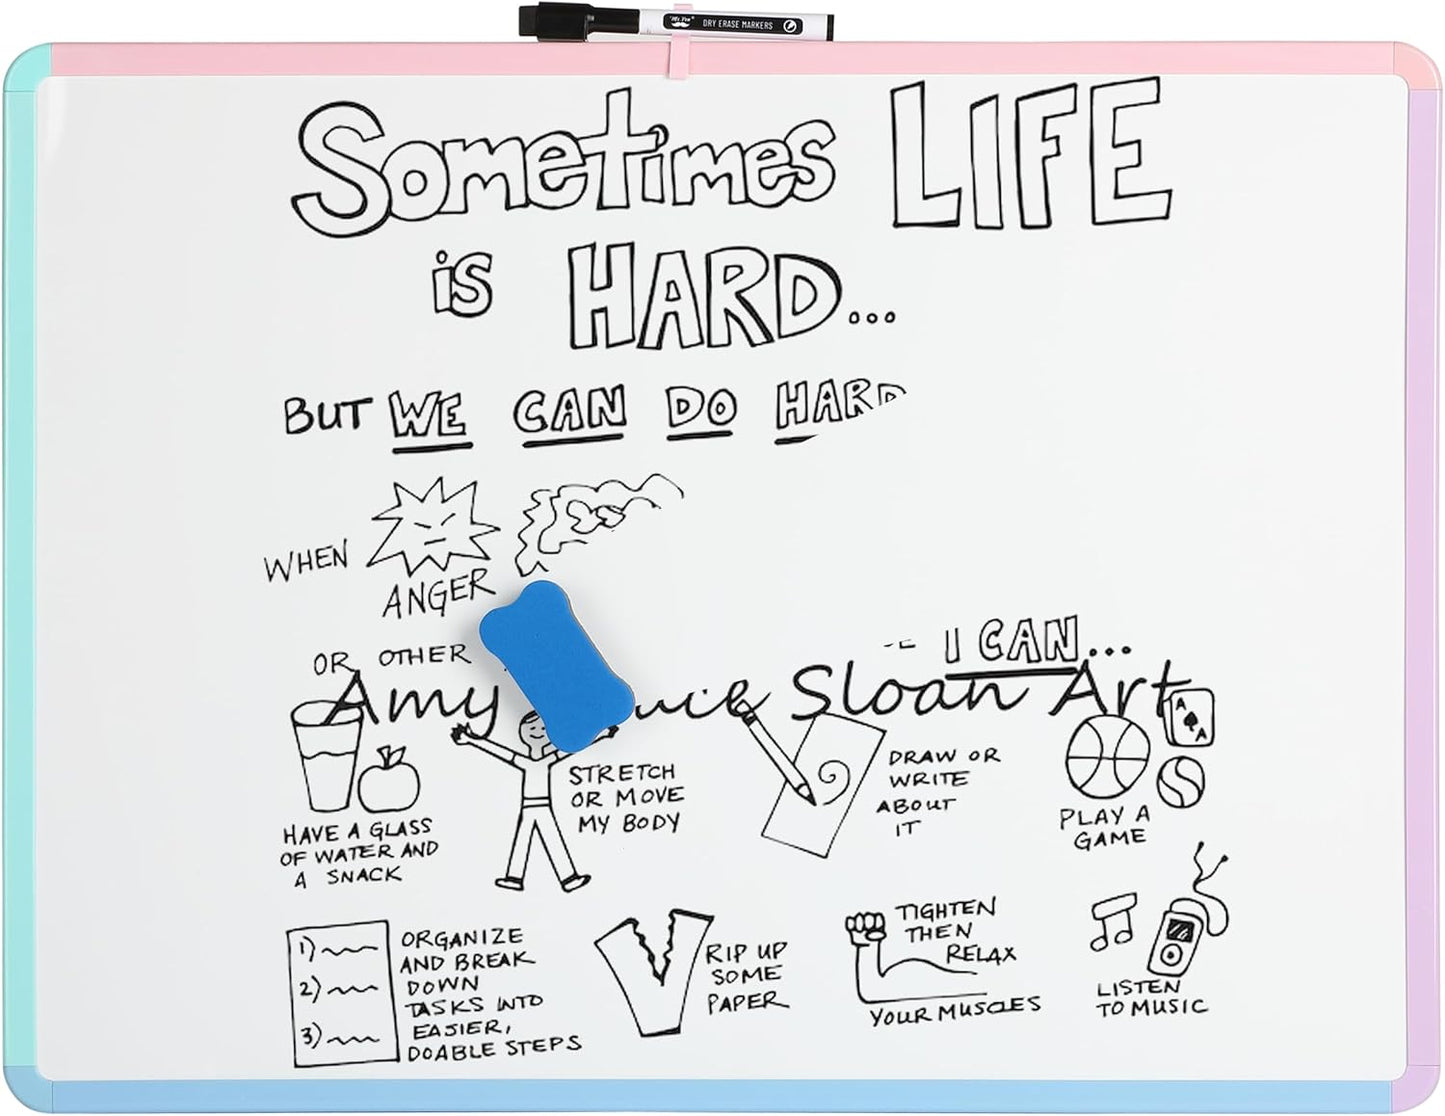 Mr. Pen DRY ERASE MARKERS
Sometimes LIFE
is HARD...
BUT WE CAN DO HARD
WHEN
ANGER
OR OTHER
I CAN...
Amy Sloan Art
HAVE A GLASS
OF WATER AND
A SNACK
STRETCH
OR MOVE
MY BODY
DRAW OR
WRITE
ABOUT
IT
A
A
PLAY A
GAME
1)
2)
3)
ORGANIZE
AND BREAK
DOWN
TASKS INTO
EASIER,
DOABLE STEPS
RIP UP
SOME
PAPER
TIGHTEN
THEN
RELAX
YOUR MUSCLES
LISTEN
TO MUSIC